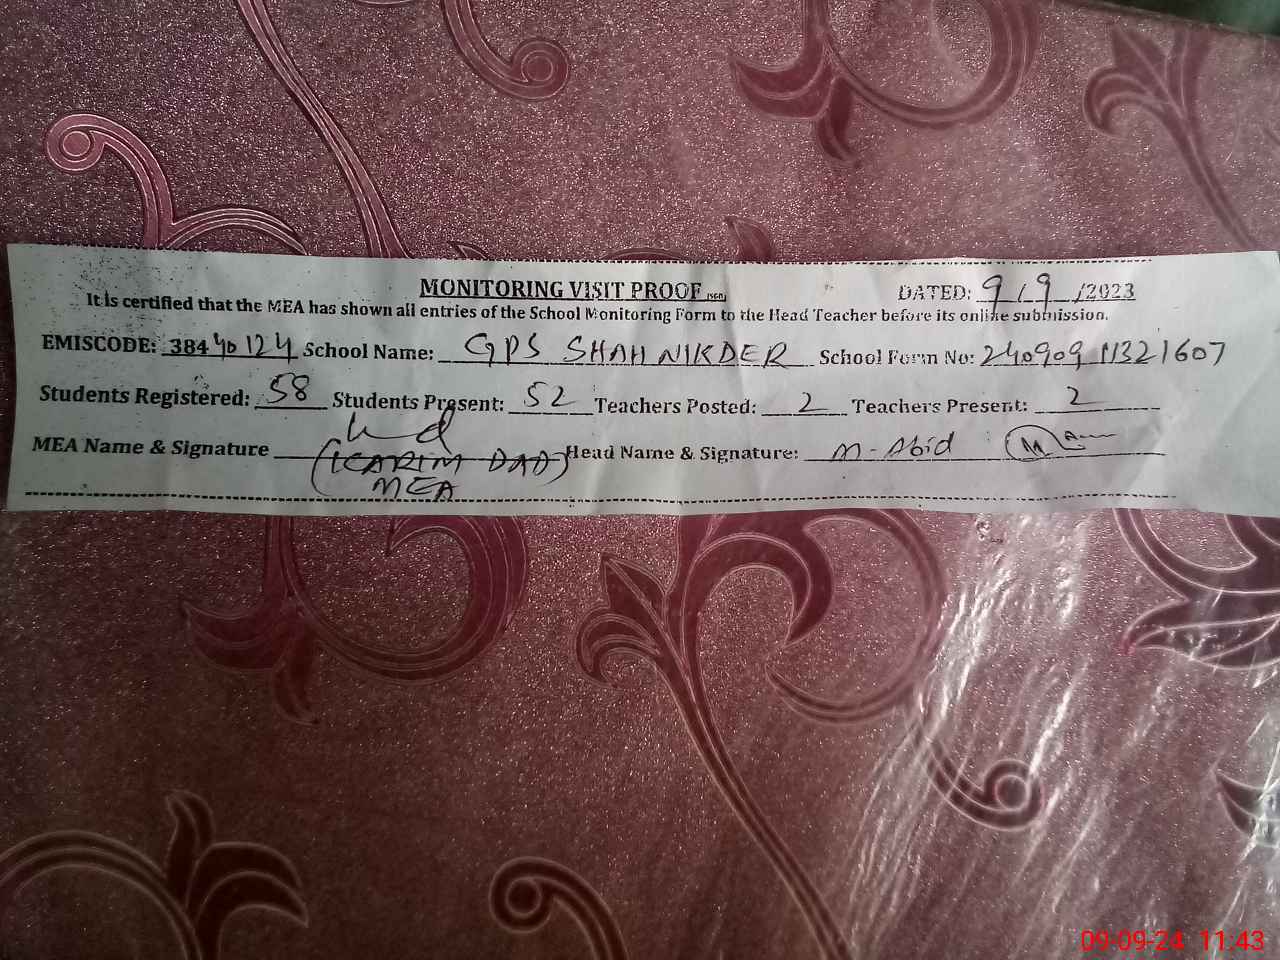 MONITORING VISIT PROOF (SGD) DATED: 9/9/2023
It is certified that the MEA has shown all entries of the School Monitoring Form to the Head Teacher before its online submission.
EMISCODE: 38440124 School Name: GPS SHAH NIKDER School Form No: 240909 11321607
Students Registered: 58 Students Present: 52 Teachers Posted: 2 Teachers Present: 2
MEA Name & Signature (KARIM DAD) Head Name & Signature: M-Abid
MEA
09-09-24 11:43